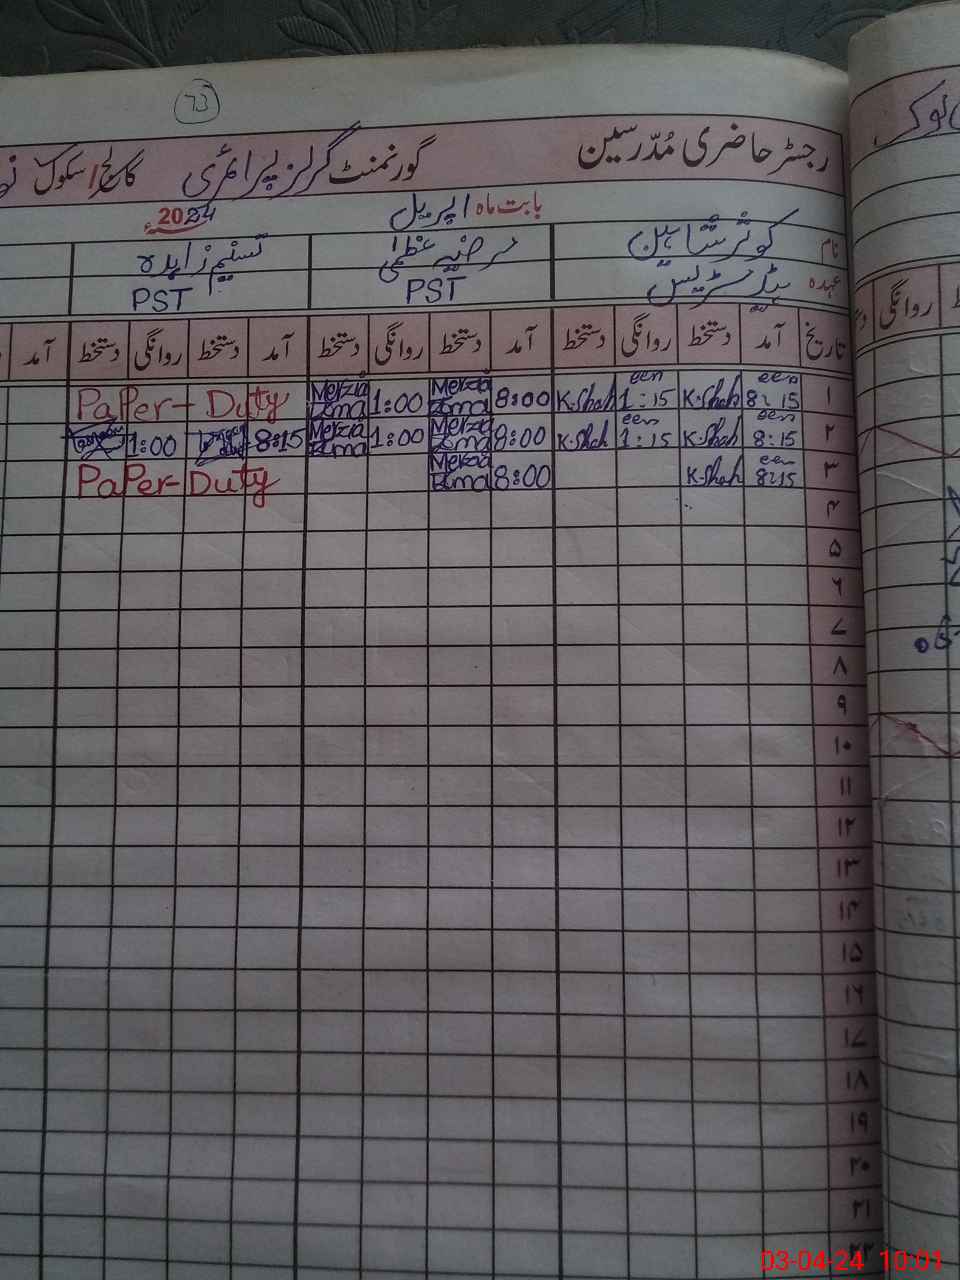 73
رجسٹر حاضری مُدّرسین گورنمنٹ گرلز پرائمری کالج/سکول
بابت ماہ اپریل 2024ء
نام کوثر شاہین مرضیہ عظمیٰ تسنیم زاہدہ
عہدہ ہیڈ مسٹریس PST PST
تاریخ آمد دستخط روانگی دستخط آمد دستخط روانگی دستخط آمد دستخط روانگی دستخط آمد
۱ 8:15 K.Shah 1:15 K.Shah 8:00 1:00 Paper-Duty
۲ 8:15 K.Shah 1:15 K.Shah 8:00 1:00 8:15 1:00
۳ 8:15 K.Shah 8:00 Paper-Duty
۴
۵
۶
۷
۸
۹
۱۰
۱۱
۱۲
۱۳
۱۴
۱۵
۱۶
۱۷
۱۸
۱۹
۲۰
۲۱
۲۲
روانگی
03-04-24 10:01